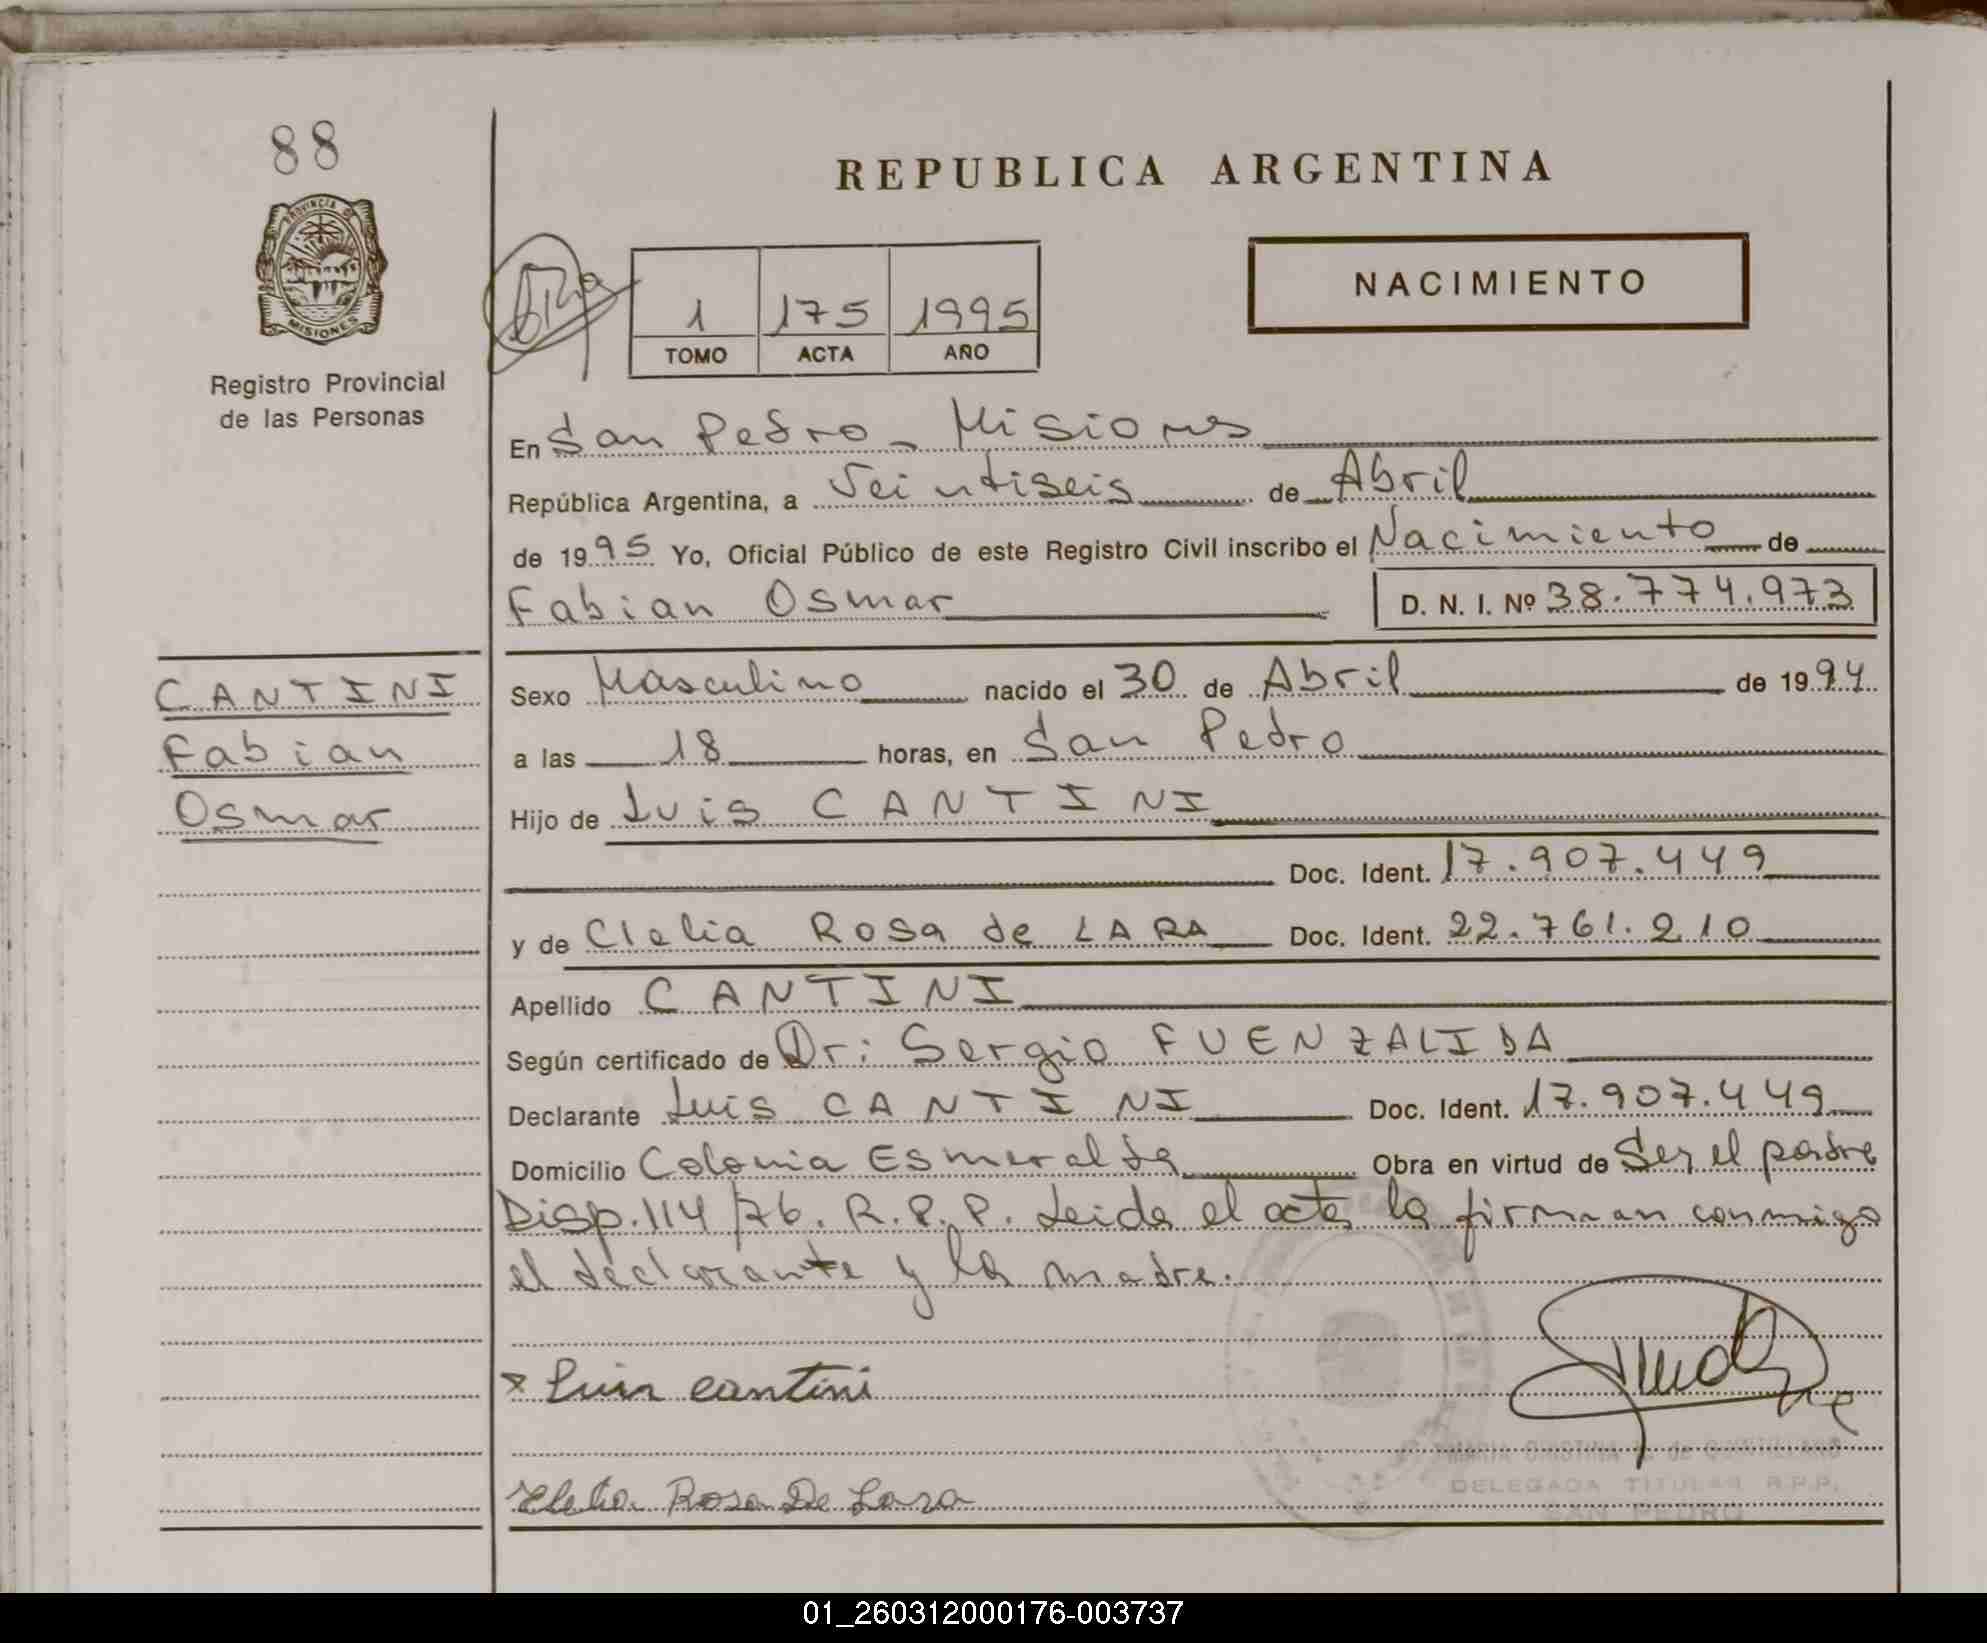 88
PROVINCIA DE
MISIONES
Registro Provincial
de las Personas
REPUBLICA ARGENTINA
1 175 1995
TOMO ACTA AÑO
NACIMIENTO
En San Pedro - Misiones
República Argentina, a Veintiseis de Abril
de 1995 Yo, Oficial Público de este Registro Civil inscribo el Nacimiento de
Fabian Osmar D. N. I. Nº 38.774.973
CANTINI
Fabian
Osmar
Sexo Masculino nacido el 30 de Abril de 1994
a las 18 horas, en San Pedro
Hijo de Luis CANTINI
Doc. Ident. 17.907.449
y de Clelia Rosa de LARA Doc. Ident. 22.761.210
Apellido CANTINI
Según certificado de Dr: Sergio FUENZALIDA
Declarante Luis CANTINI Doc. Ident. 17.907.449
Domicilio Colonia Esmeralda Obra en virtud de Ser el padre
Disp. 114/76. R.P.P. Leida el acta la firman conmigo
el declarante y la madre.
x Luis cantini
MARIA CRISTINA de
DELEGADA TITULAR R.P.P.
SAN PEDRO
Clelia Rosa De Lara
01_260312000176-003737